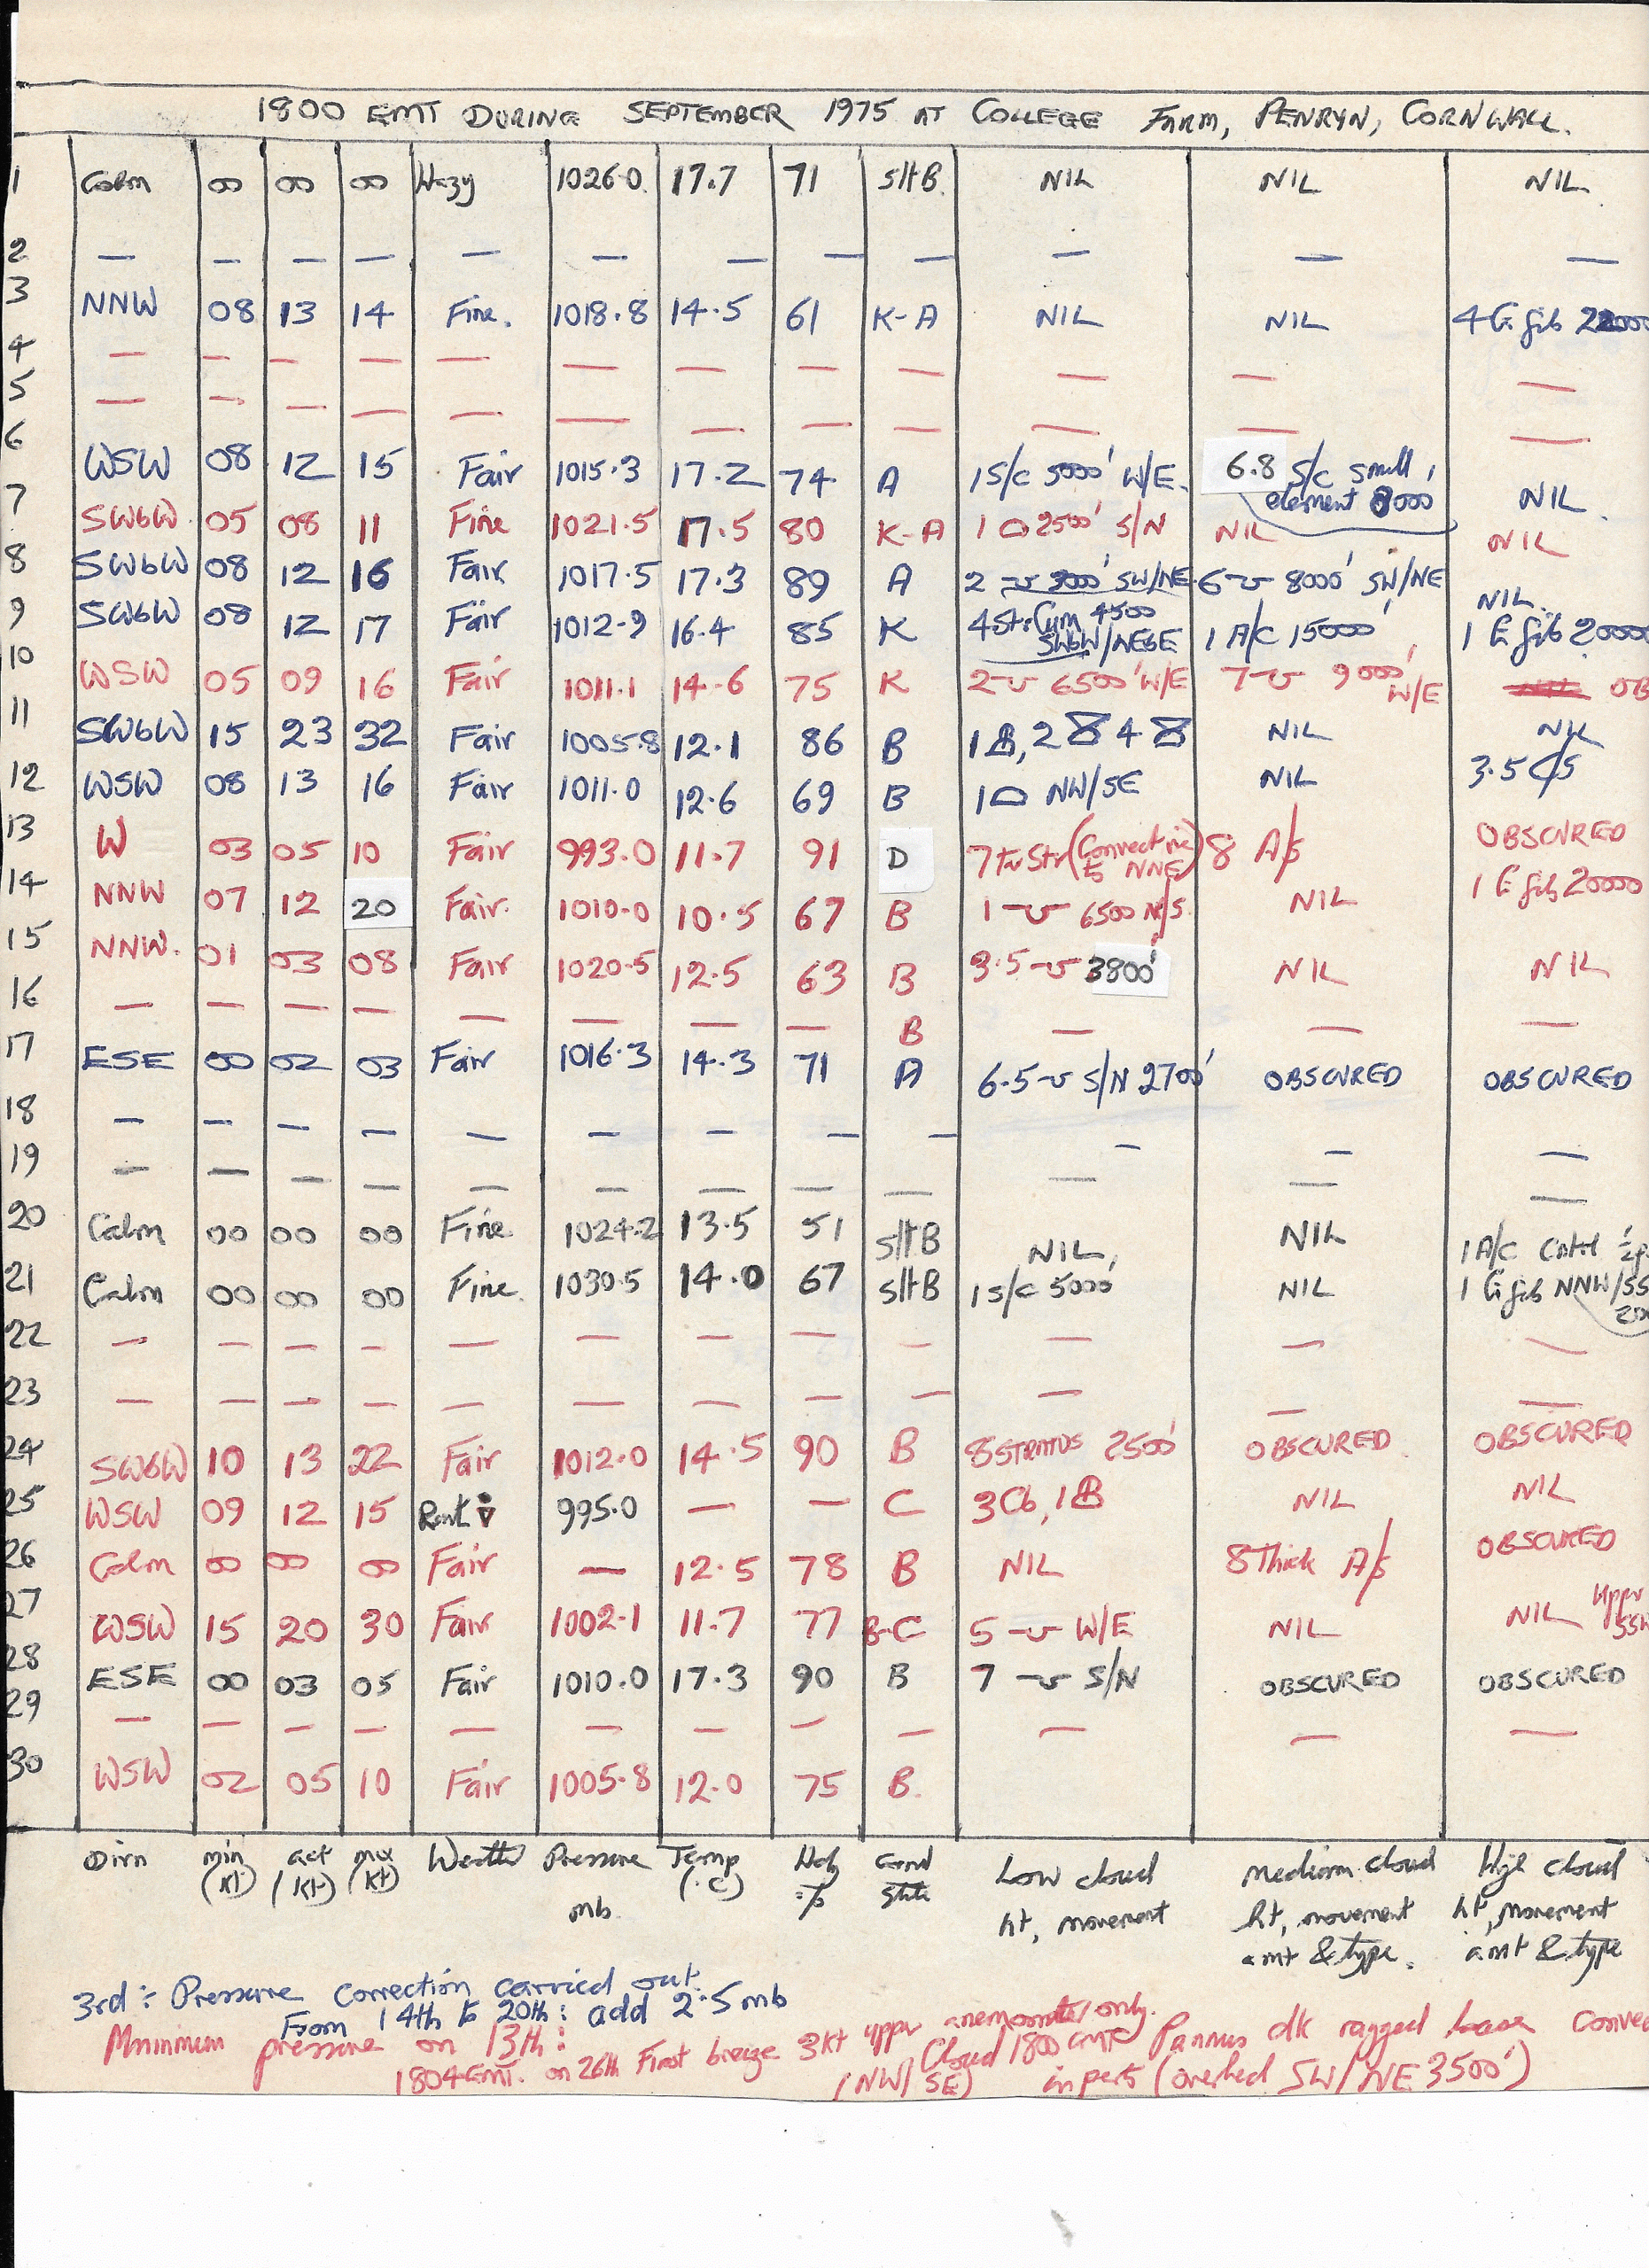 1800 GMT DURING SEPTEMBER 1975 AT COLLEGE FARM, PENRYN, CORNWALL.
1 Calm 00 00 00 Hazy 1026.0 17.7 71 slt B. NIL NIL NIL
2 — — — — — — — — — — — —
3 NNW 08 13 14 Fine. 1018.8 14.5 61 K-A NIL NIL 4 Ci fib
4 — — — — — — — — — — — —
5 — — — — — — — — — — — —
6 WSW 08 12 15 Fair 1015.3 17.2 74 A 1 S/C 5000' W/E. 6.8 S/C small element 8000 NIL.
7 SWbW 05 08 11 Fine 1021.5 17.5 80 K-A 1 2500' S/N NIL NIL
8 SWbW 08 12 16 Fair 1017.5 17.3 89 A 2 SW/NE 6 8000' SW/NE NIL.
9 SWbW 08 12 17 Fair 1012.9 16.4 85 K 4 Str Cum 4500 SWbW/NEbE 1 A/C 15000' 1 Ci fib 20000
10 WSW 05 09 16 Fair 1011.1 14.6 75 K 2 6500' W/E 7 9000' W/E OB
11 SWbW 15 23 32 Fair 1005.8 12.1 86 B 1, 2 4 NIL NIL
12 WSW 08 13 16 Fair 1011.0 12.6 69 B 1 NW/SE NIL 3.5 C/S
13 W 03 05 10 Fair 993.0 11.7 91 D 7 Str (Convective NNE) 8 A/s OBSCURED
14 NNW 07 12 20 Fair. 1010.0 10.5 67 B 1 6500 N/S. NIL 1 Ci fib 20000
15 NNW. 01 03 08 Fair 1020.5 12.5 63 B 3.5 3800' NIL NIL
16 — — — — — — — — B — — —
17 ESE 00 02 03 Fair 1016.3 14.3 71 A 6.5 S/N 2700' OBSCURED OBSCURED
18 — — — — — — — — — — — —
19 — — — — — — — — — — — —
20 Calm 00 00 00 Fine. 1024.2 13.5 51 slt B NIL, NIL 1 A/C
21 Calm 00 00 00 Fine. 1030.5 14.0 67 slt B 1 S/C 5000' NIL 1 Ci fib NNW/SS
22 — — — — — — — — — — — —
23 — — — — — — — — — — — —
24 SWbW 10 13 22 Fair 1012.0 14.5 90 B 8 STRATUS 2500' OBSCURED OBSCURED
25 WSW 09 12 15 995.0 — — C 3 Cb, 1 NIL NIL
26 Calm 00 00 00 Fair — 12.5 78 B NIL 8 Thick A/s OBSCURED
27 WSW 15 20 30 Fair 1002.1 11.7 77 B-C 5 W/E NIL NIL Upper
28 ESE 00 03 05 Fair 1010.0 17.3 90 B 7 S/N OBSCURED OBSCURED
29 — — — — — — — — — — — —
30 WSW 02 05 10 Fair 1005.8 12.0 75 B.
Dirn min (kt) act (kt) max (kt) Weather Pressure mb. Temp (°C) Hdy % Grnd State Low cloud ht, movement Medium cloud ht, movement amt & type. High cloud ht, movement amt & type
3rd : Pressure correction carried out.
From 14th to 20th : add 2.5 mb
Minimum pressure on 13th :
1804 GMT. on 26th First breeze 3kt upper anemometer only.
(NW/SE) Cloud 1800 GMT Pannus dk ragged base Convec
in parts (overhead SW/NE 3500')